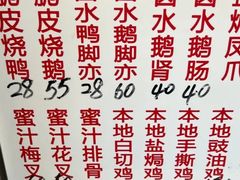 脆皮烧鸭
28
脆皮烧鹅
55
水鸭脚亦
28
水鹅脚亦
60
水鹅肾
40
水鹅肠
40
凤爪
蜜汁梅叉
蜜汁花叉
蜜汁排骨
本地白切鸡
本地盐焗鸡
本地手撕鸡
本地豉油鸡